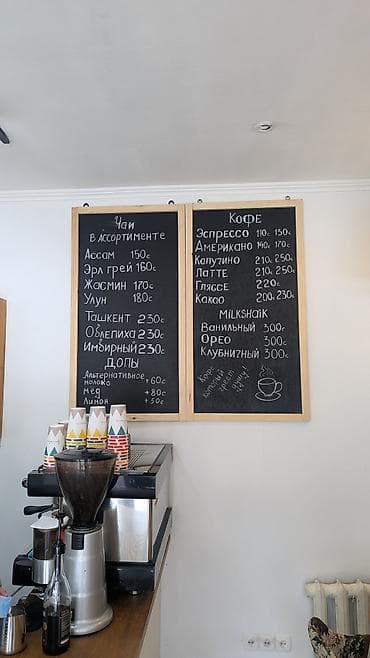 Чаи
в ассортименте
Ассам 150с
Эрл грей 160с
Жасмин 170с
Улун 180с
Ташкент 230с
Облепиха 230с
Имбирный 230с
Допы
Альтернативное
молоко +60с
мёд +80с
Лимон +50с
Кофе
Эспрессо 110с 150с
Американо 140с 170с
Капучино 210с 250с
Латте 210с 250с
Гляссе 220с
Какао 200с 230с
Milkshaik
Ванильный 300с
Орео 300с
Клубничный 300с
Кофе,
который
греет
душу!